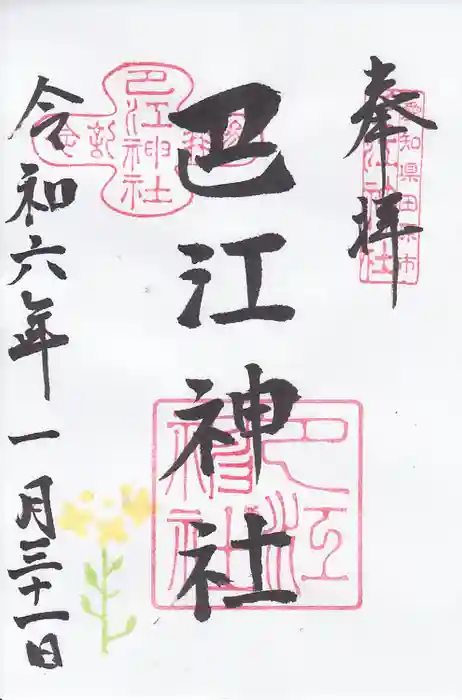 奉拝
愛知県田原市
巴江神社
巴江神社
令和六年一月三十一日
巴江神社
参拝
記念
巴江神社